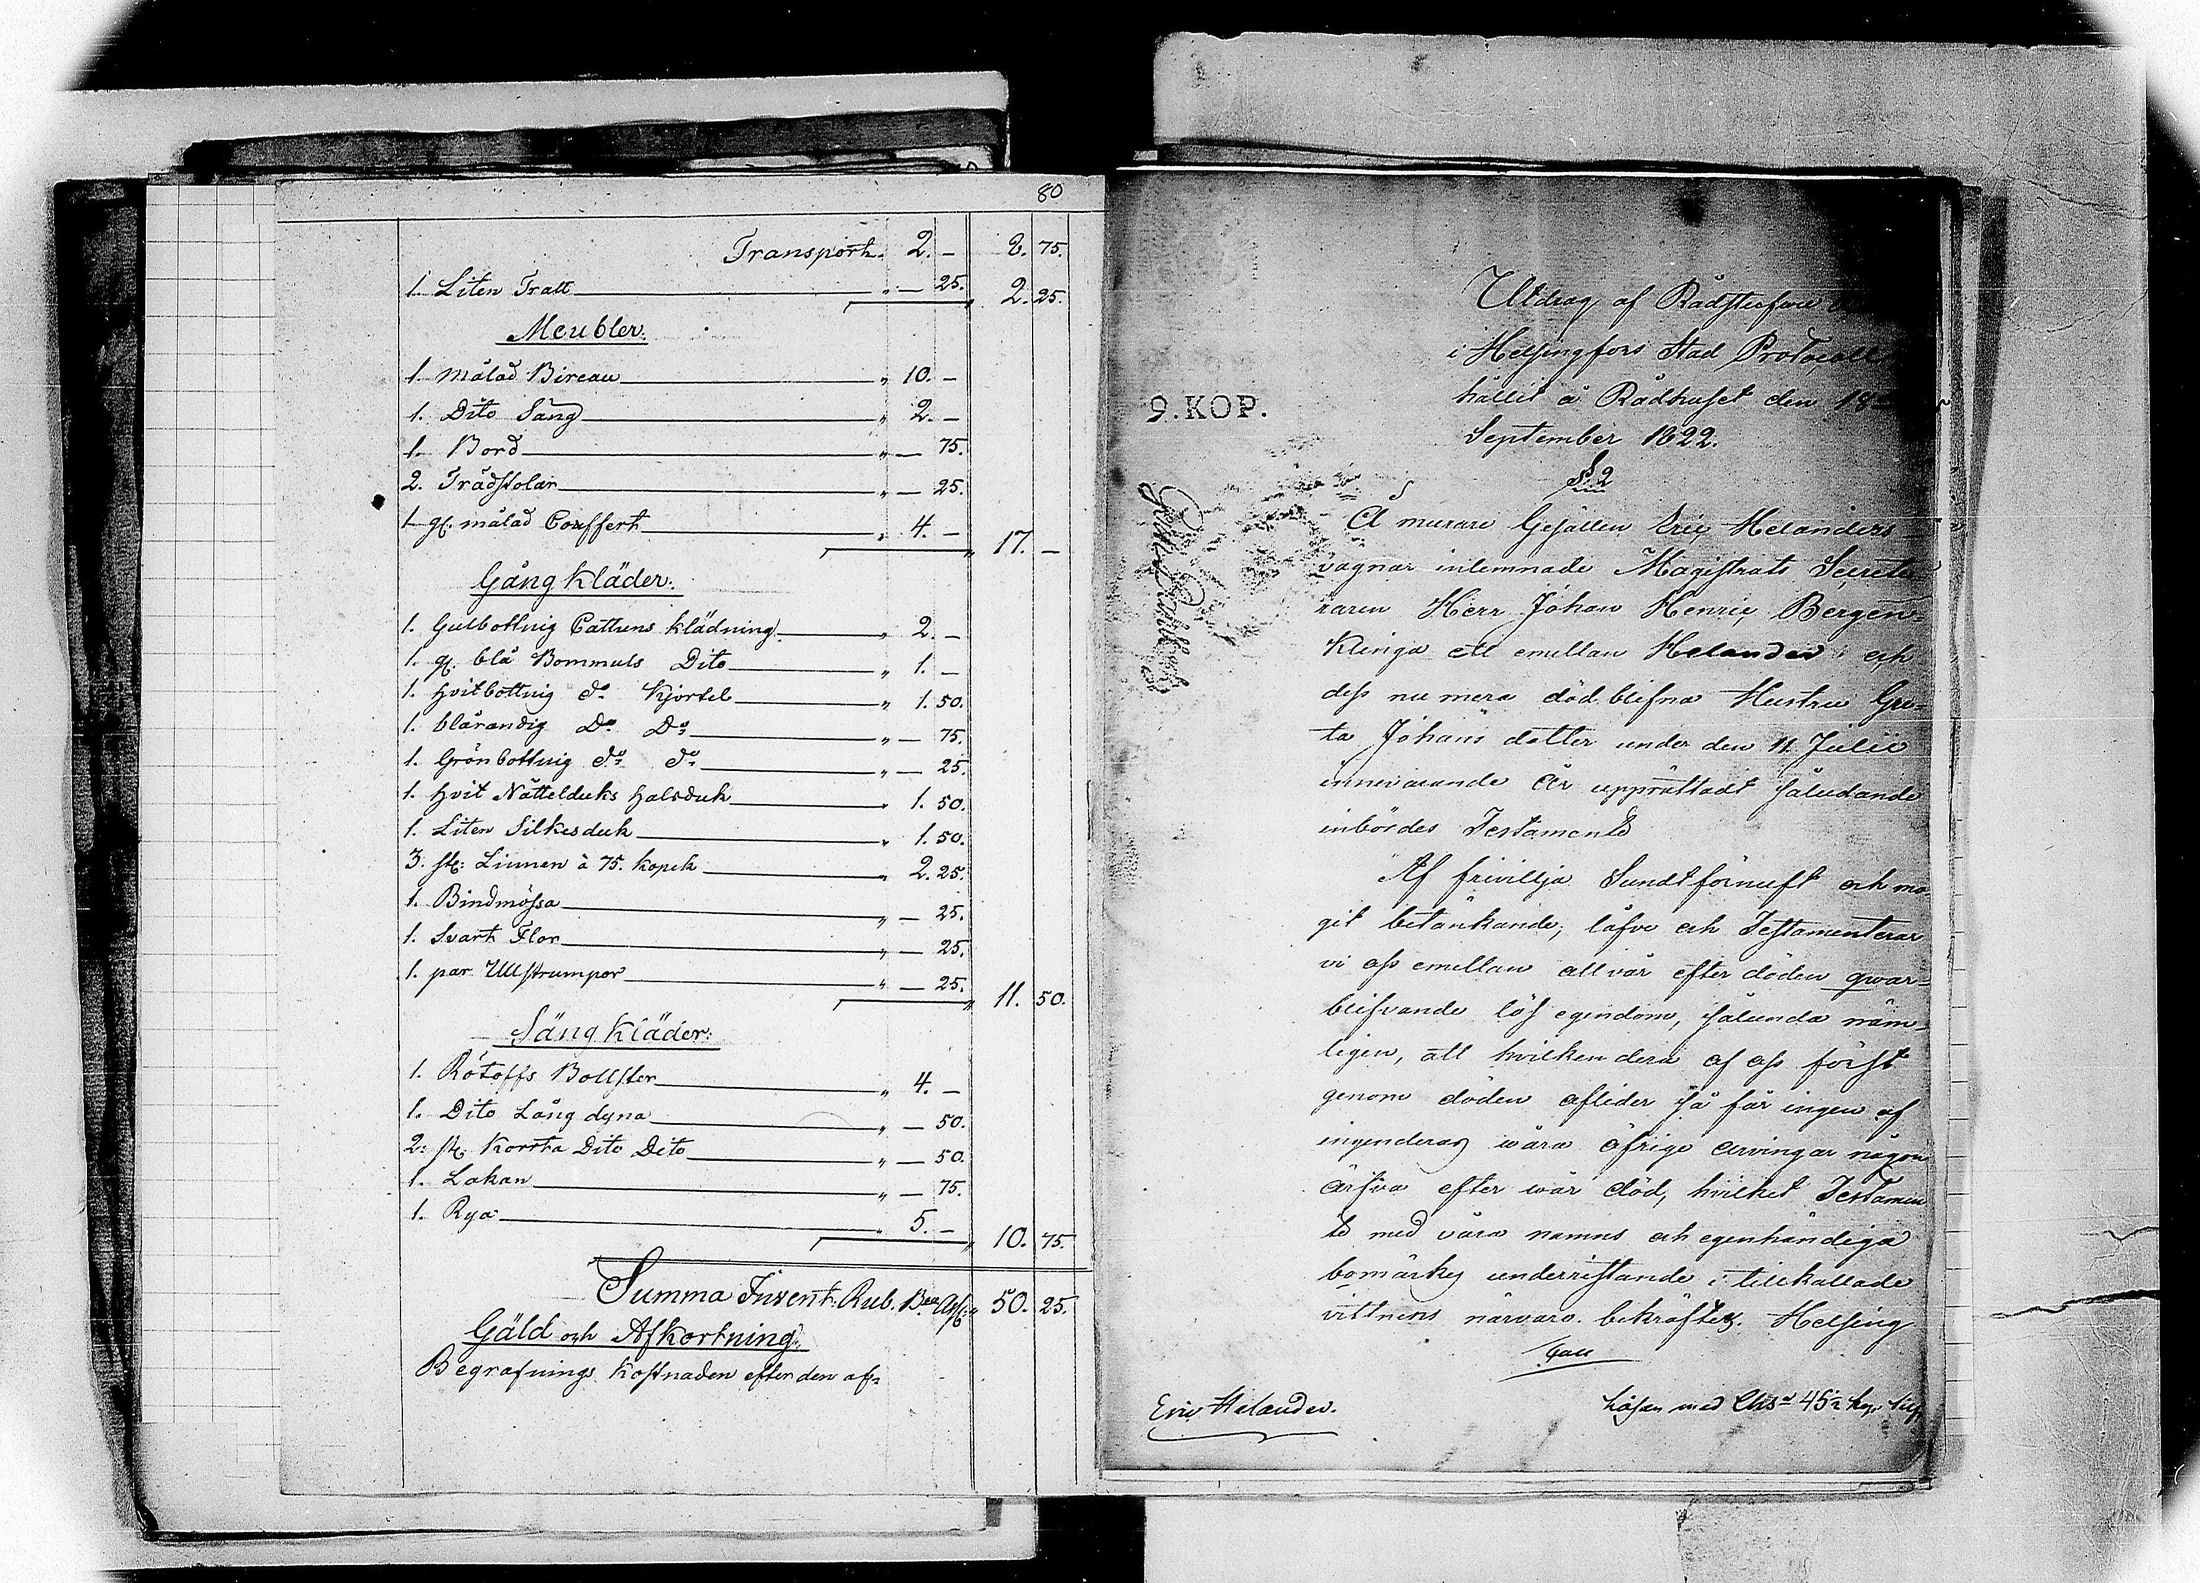 80
Transport. 2. — 8. 75.
1. Liten Tratt " — 25. " 2. 25.
Meubler:
1. målad Bireau " 10. —
1. Dito Säng " 2. —
1. Bord " — 75.
2. Trädstolar " — 25.
1. gl. målad Couffert " 4. — " 17. —
Gångkläder:
1. Gulbottnig Cattuns Klädning " 2. —
1. gl. blå Bommuls Dito " 1. —
1. Hvitbottnig do Kjortel " 1. 50.
1. blårandig Do Do " — 75.
1. Grönbottnig do do " — 25.
1. Hvit Nättelduks Halsduk " 1. 50.
1. Liten Silkesduk " 1. 50.
3. st: Linnen à 75. kopek " 2. 25.
1. Bindmössa " — 25.
1. Svart Flor " — 25.
1. par Ullstrumpor " — 25. " 11. 50.
Sängkläder:
1. Bollster " 4. —
1. Dito Långdyna " — 50.
2. st. Korrta Dito Dito " — 50.
1. Lakan " — 75.
1. Rya " 5. — " 10. 75.
Summa Invent: Rub. Bco 50. 25.
Gäld och Afkortning:
Begrafnings Kostnaden efter den af=
9. KOP.
Utdrag af Rådstufvu
i Helsingfors Stad Protocoll
hållit å Rådhuset den 18
September 1822.
§. 2
Å murare Gesällen Eric Helanders
vägnar inlemnade Magistrats Secrete
raren Herr Johan Henric Bergen=
Klinga ett emellan Helander och
dess nu mera död blefna Hustru Gre=
ta Johans dotter under den 11 Julii
innevarande år upprättadt sålydande
inbördes Testamente
Af frivillja Sundt förnuft och mo
git betänkande, låfve och Testamenterar
vi oss emellan all vår efter döden qwar=
blifvande lös egendom, sålunda näm=
ligen, att hvilkendera af oss först
genom döden aflider så får ingen af
ingenderas wåra öfrige arvingar någon
ärfva efter wår död, hvilket Testamen
te med våra namns och egenhändiga
bomärkes underristande i tillkallade
vittnens närvaro bekräftes. Helsing
fors
Eric Helander.
Lösen med 45